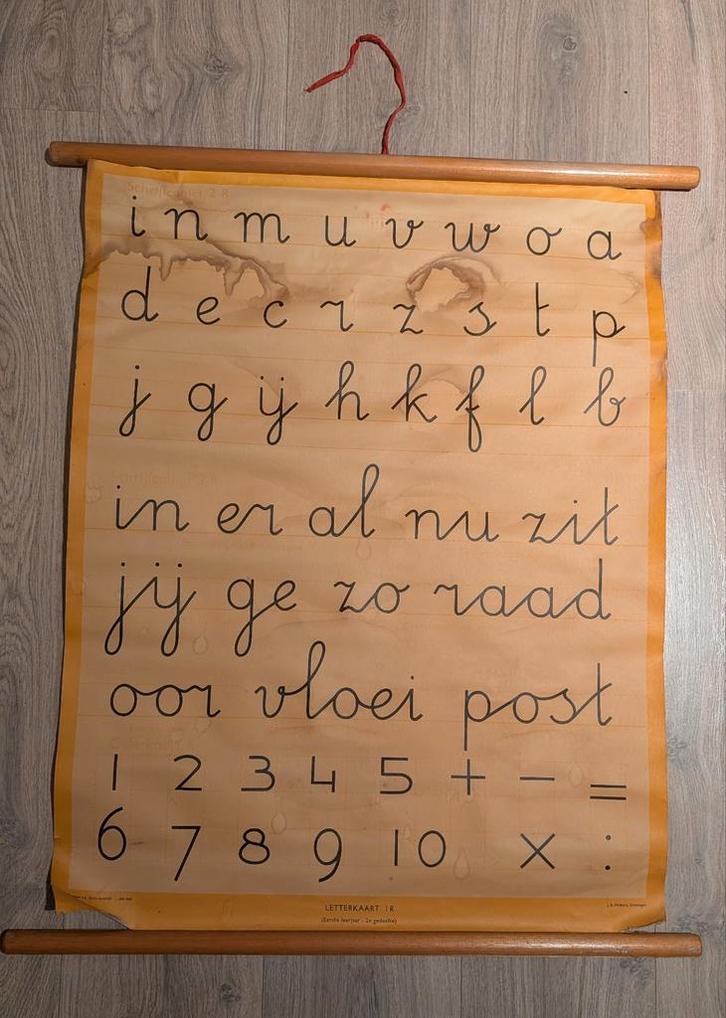 i n m u v w o a
d e c r z s t p
j g ij h k f l b
in er al nu zit
jij ge zo raad
oor vloei post
1 2 3 4 5 + - =
6 7 8 9 10 x :
LETTERKAART 1R
(Eerste leerjaar - 2e gedeelte)